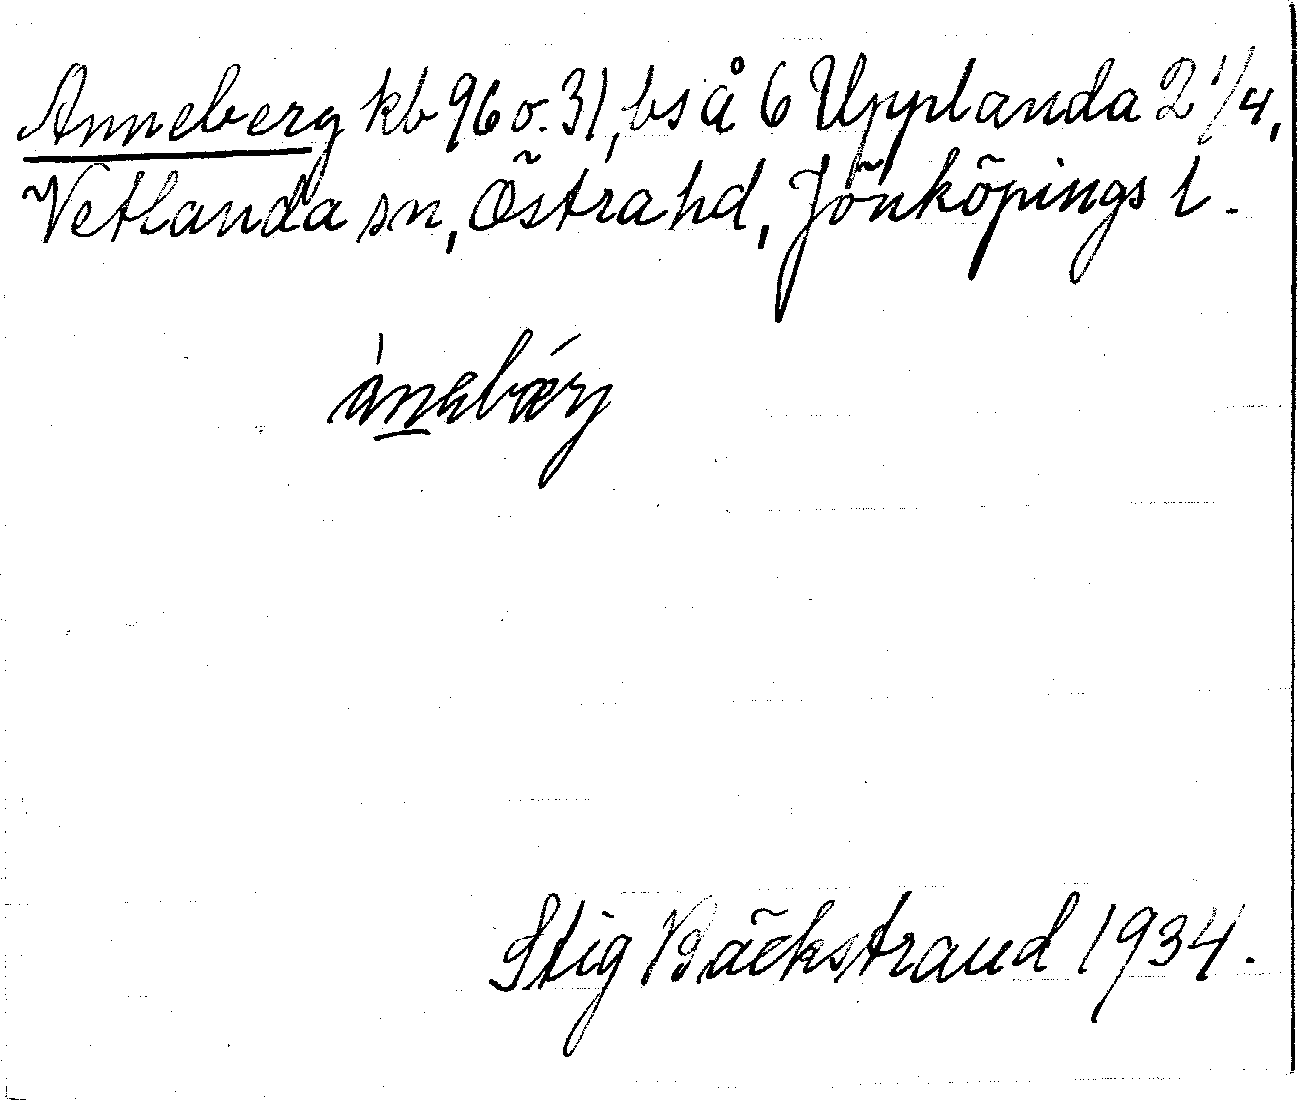 Anneberg kb 96 o. 31, bs å 6 Upplanda 2 1/4,
Vetlanda sn, Östra hd, Jönköpings l.
ànebǽrj
Stig Bäckstrand 1934.